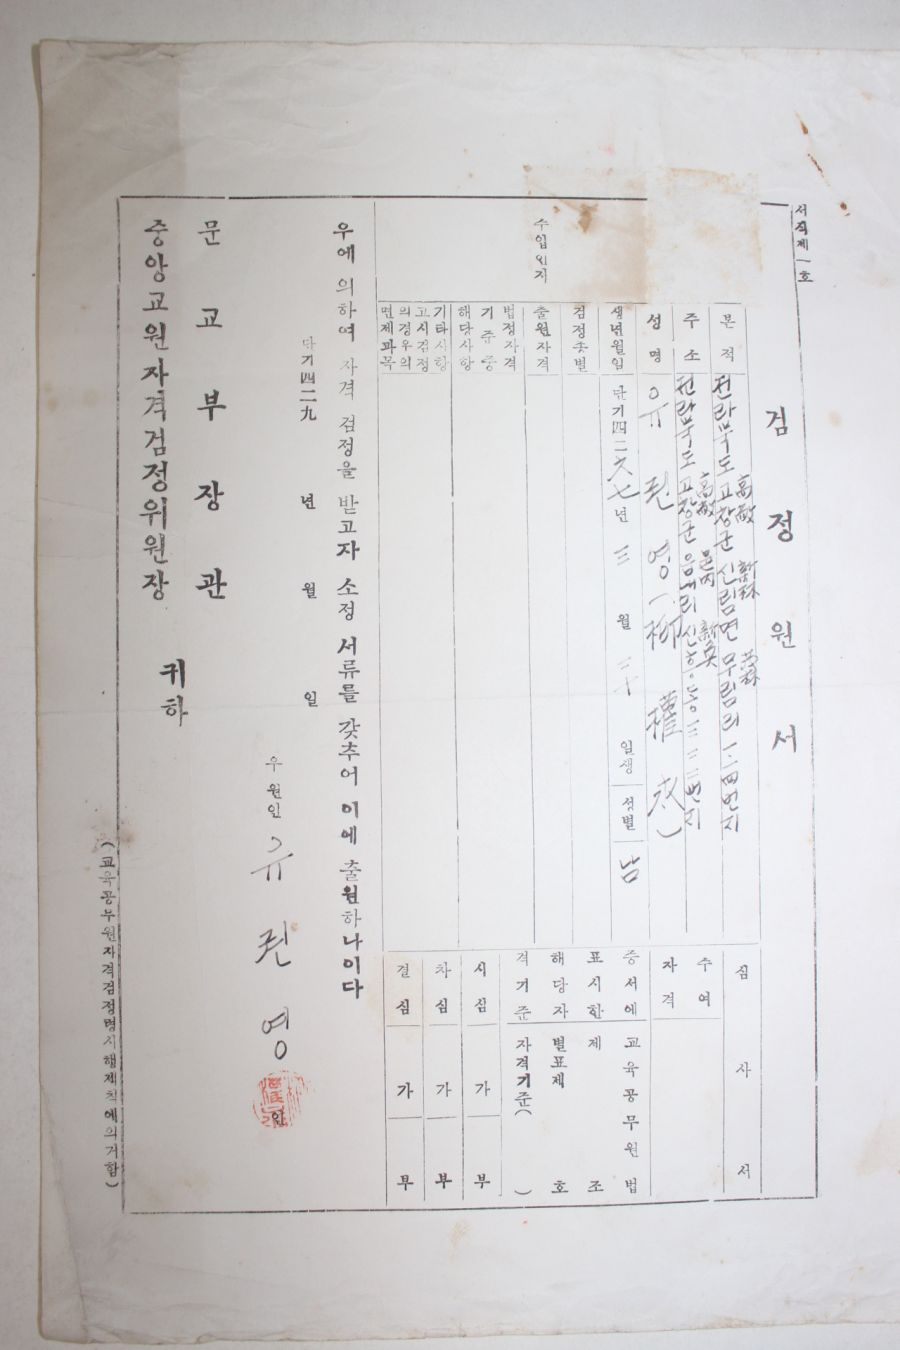 서식제一호
검정원서
본적 전라북도 고창군 신림면 무림리 一二四번지
高敞 新林 茂林
주소 전라북도 고창군 읍내리 신흥동 三三二번지
高敞 邑內
성명 유권영 (柳權永)
생년월일 단기四二六七년 三월 二十일생 성별 남
검정종별
수입인지
출원자격
법정자격기준중해당사항
기타사항
고시검정의경우의면제과목
심사서
수여자격
증서에 교육공무원법
표시한 제 조
해당자 별표제 호
격기준 자격기준( )
시심 가부
차심 가부
결심 가부
우에 의하여 자격 검정을 받고자 소정 서류를 갖추어 이에 출원하나이다
단기四二九 년 월 일
우원인 유권영 인
문교부장관
중앙교원자격검정위원장
귀하
(교육공무원자격검정령시행제칙에의거함)